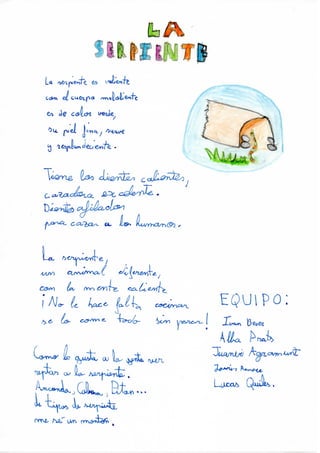 LA
SERPIENTE
La serpiente es valiente
con el cuerpo maloliente
es de color verde,
su piel fina, suave
y resplandeciente.
Tiene los dientes calientes,
cazadora excelente.
Dientes afilados
para cazar a los humanos.
La serpiente,
un animal diferente,
con la mente caliente
¡No le hace falta cocinar
se lo come todo sin parar!
Como le gusta a la gente ver
reptar a la serpiente.
Anconda, Cobra, Pitón...
de tipos de serpiente
me sé un montón.
EQUIPO:
Alba Prats
Juanvi Agramunt
Lucas Quiles.